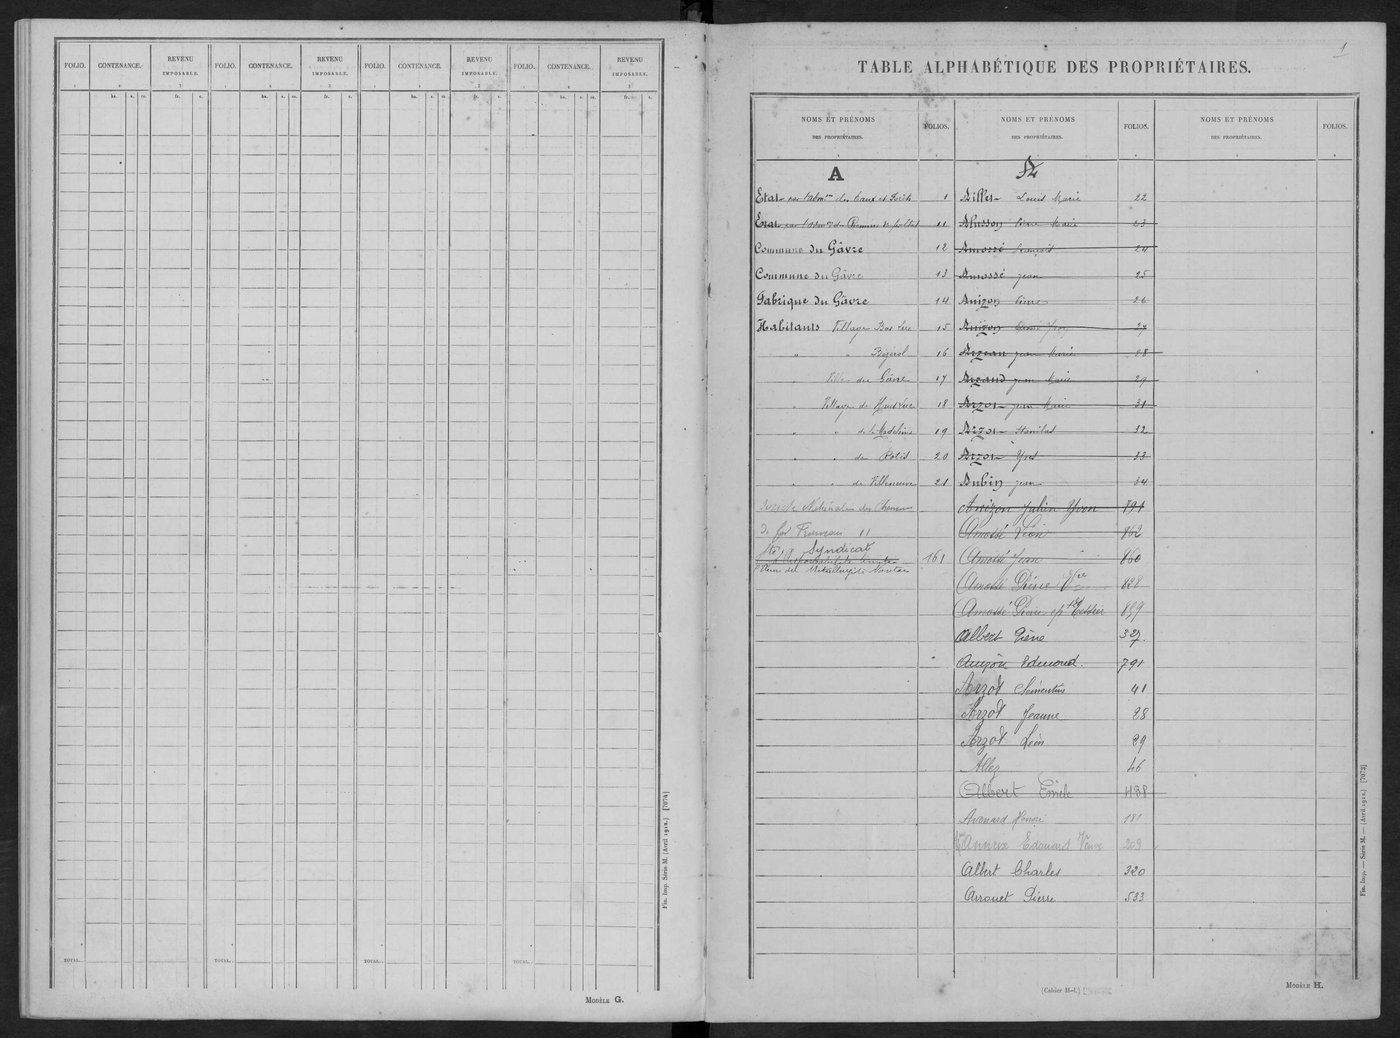 FOLIO. CONTENANCE. REVENU IMPOSABLE. FOLIO. CONTENANCE. REVENU IMPOSABLE. FOLIO. CONTENANCE. REVENU IMPOSABLE. FOLIO. CONTENANCE. REVENU IMPOSABLE.
1 2 3 1 2 3 1 2 3 1 2 3
ha. a. ca. fr. c. ha. a. ca. fr. c. ha. a. ca. fr. c. ha. a. ca. fr. c.
TOTAL. TOTAL. TOTAL. TOTAL.
Fin. Imp. Série M. (Avril 1912.) [7074]
MODÈLE G.
1
TABLE ALPHABÉTIQUE DES PROPRIÉTAIRES.
NOMS ET PRÉNOMS DES PROPRIÉTAIRES. FOLIOS. NOMS ET PRÉNOMS DES PROPRIÉTAIRES. FOLIOS. NOMS ET PRÉNOMS DES PROPRIÉTAIRES. FOLIOS.
A
Etat par l'adm.on des Eaux et Forêts 1
Etat par l'adm.on des Chemins de fer l'Etat 11
Commune du Gâvre 12
Commune du Gâvre 13
Fabrique du Gâvre 14
Habitants Village Bas Luc 15
" " 16
" Ville du Gâvre 17
" Village de Haut Luc 18
" " de la Madeleine 19
" " de Rotis 20
" " de Villeneuve 21
Nationale des Chemins
de fer 11
Syndicat
161
A
Louis Marie 22
Ahusson Pierre Marie 23
Amossé François 24
Amossé Jean 25
Anizon Pierre 26
Anizon 27
Arzeau Jean Marie 28
Arzaud Jean Marie 29
Arzot Jean Marie 31
Arzot Stanislas 32
Arzot Yves 33
Aubin Jean 34
Anizon Julien Yvon 891
Amossé Léon 862
Amossé Jean 860
Amossé Pierre Vve 828
Amossé Pierre ep. Tessier 859
Albert Pierre 327
Anizon Edmond. 791
Arzot 41
Arzot Jeanne 28
Arzot Léon 89
Allez 46
Albert Emile 438
Avenard Honoré 181
Edouard Veuve 209
Albert Charles 320
Arrouet Pierre 533
(Cahier H-1.)
MODÈLE H.
Fin. Imp. — Série M. — (Avril 1912.) [7073]